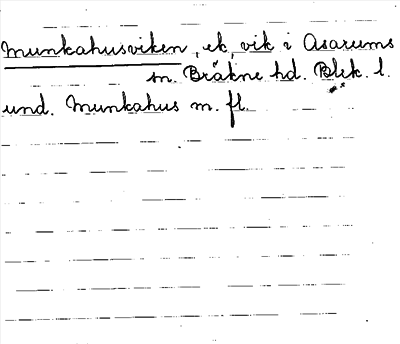 Munkahusviken, ek, vik i Asarums
sn. Bräkne hd. Blek. l.
und. Munkahus m. fl.